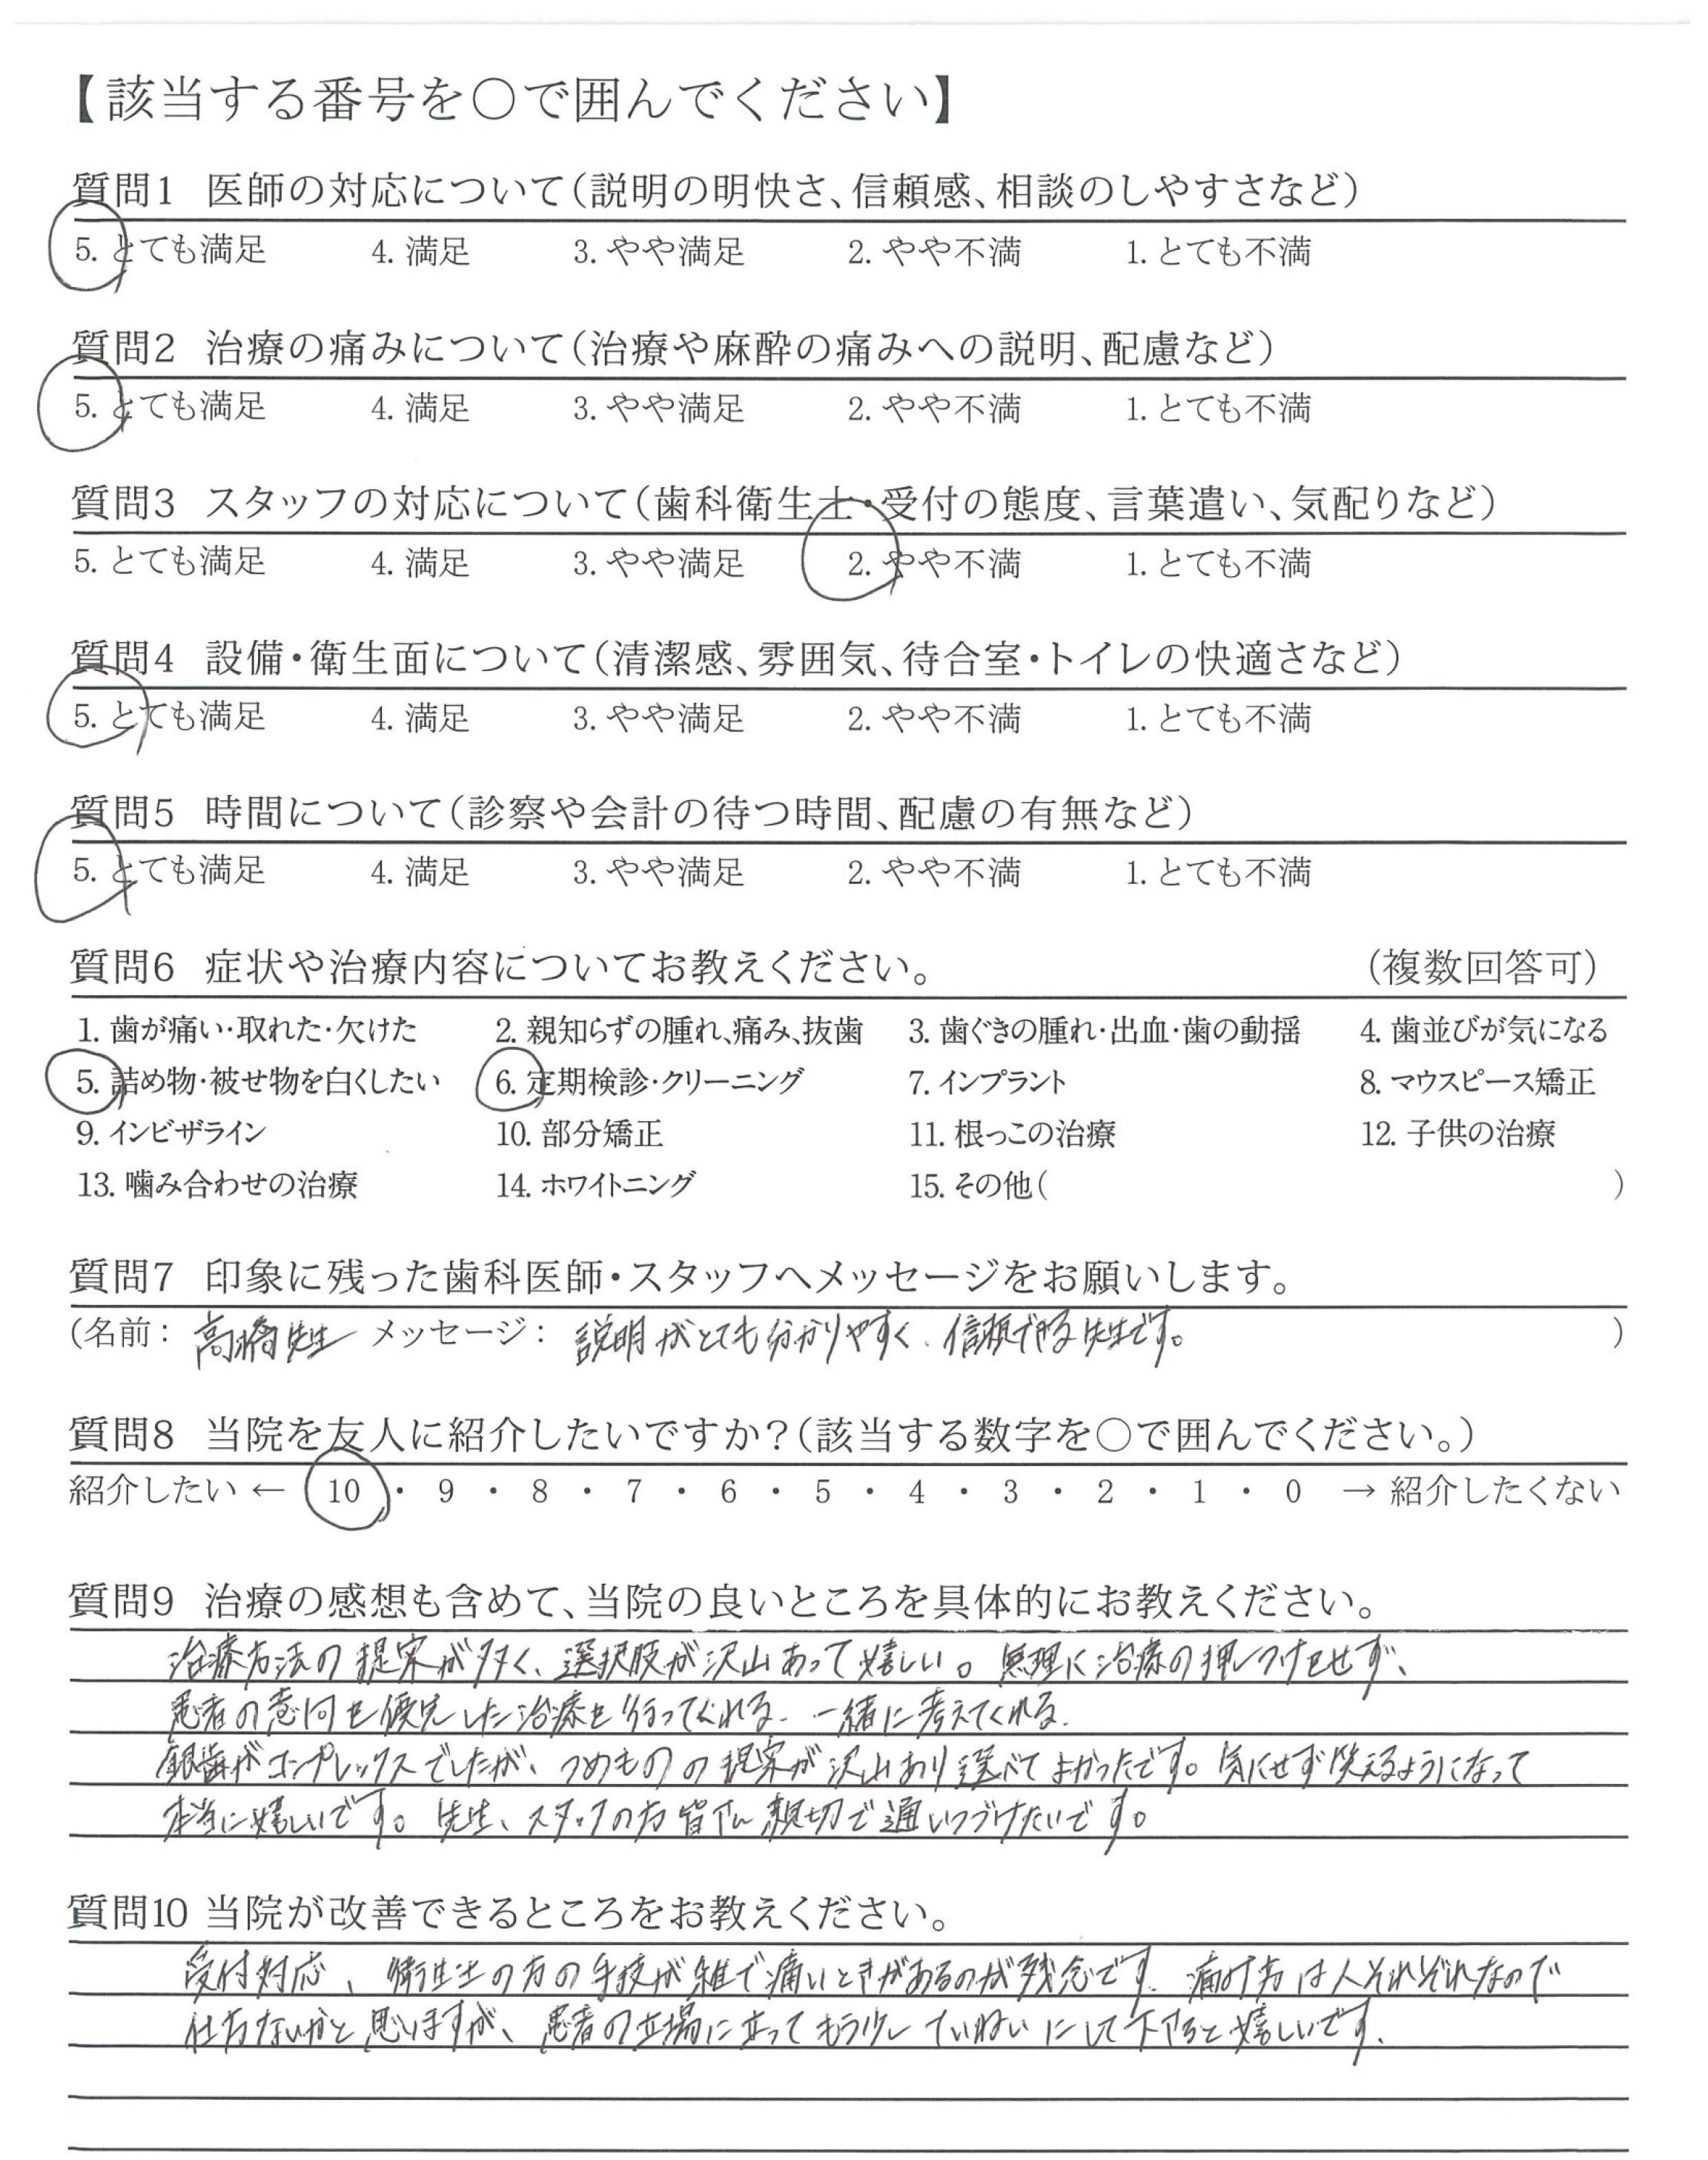 【該当する番号を○で囲んでください】
質問1 医師の対応について(説明の明快さ、信頼感、相談のしやすさなど)
5. とても満足 4. 満足 3. やや満足 2. やや不満 1. とても不満
質問2 治療の痛みについて(治療や麻酔の痛みへの説明、配慮など)
5. とても満足 4. 満足 3. やや満足 2. やや不満 1. とても不満
質問3 スタッフの対応について(歯科衛生士・受付の態度、言葉遣い、気配りなど)
5. とても満足 4. 満足 3. やや満足 2. やや不満 1. とても不満
質問4 設備・衛生面について(清潔感、雰囲気、待合室・トイレの快適さなど)
5. とても満足 4. 満足 3. やや満足 2. やや不満 1. とても不満
質問5 時間について(診察や会計の待つ時間、配慮の有無など)
5. とても満足 4. 満足 3. やや満足 2. やや不満 1. とても不満
質問6 症状や治療内容についてお教えください。 (複数回答可)
1. 歯が痛い・取れた・欠けた 2. 親知らずの腫れ、痛み、抜歯 3. 歯ぐきの腫れ・出血・歯の動揺 4. 歯並びが気になる
5. 詰め物・被せ物を白くしたい 6. 定期検診・クリーニング 7. インプラント 8. マウスピース矯正
9. インビザライン 10. 部分矯正 11. 根っこの治療 12. 子供の治療
13. 噛み合わせの治療 14. ホワイトニング 15. その他( )
質問7 印象に残った歯科医師・スタッフへメッセージをお願いします。
(名前: 高橋先生 メッセージ: 説明がとても分かりやすく、信頼できる先生です。 )
質問8 当院を友人に紹介したいですか?(該当する数字を○で囲んでください。)
紹介したい ← 10 ・ 9 ・ 8 ・ 7 ・ 6 ・ 5 ・ 4 ・ 3 ・ 2 ・ 1 ・ 0 → 紹介したくない
質問9 治療の感想も含めて、当院の良いところを具体的にお教えください。
治療方法の提案が多く、選択肢が沢山あって嬉しい。無理に治療の押しつけをせず、
患者の意向を優先した治療を行ってくれる。一緒に考えてくれる。
銀歯がコンプレックスでしたが、つめものの提案が沢山あり選べてよかったです。気にせず笑えるようになって
本当に嬉しいです。先生、スタッフの方皆さん親切で通いつづけたいです。
質問10 当院が改善できるところをお教えください。
受付対応、衛生士の方の手技が雑で痛いときがあるのが残念です。痛み方は人それぞれなので
仕方ないかと思いますが、患者の立場に立ってもう少していねいにして下さると嬉しいです。